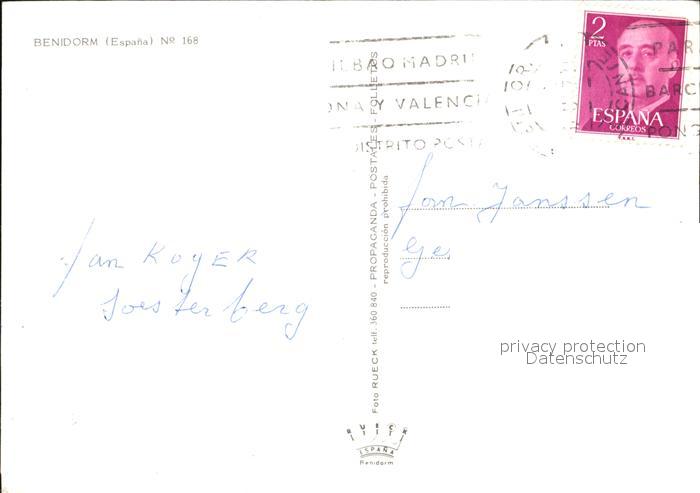 BENIDORM (España) Nº 168
BILBAO MADRI
ONA Y VALENCI
DISTRITO POSTA
PAR
BARC
PONG
2
PTAS
ESPAÑA
CORREOS
Jan KOGER
Soesterberg
Foto RUECK telf. 360 840 - PROPAGANDA - POSTALES - FOLLETOS
reproducción prohibida
Jan Janssen
Ge
privacy protection
Datenschutz
RUECK
ESPAÑA
Benidorm